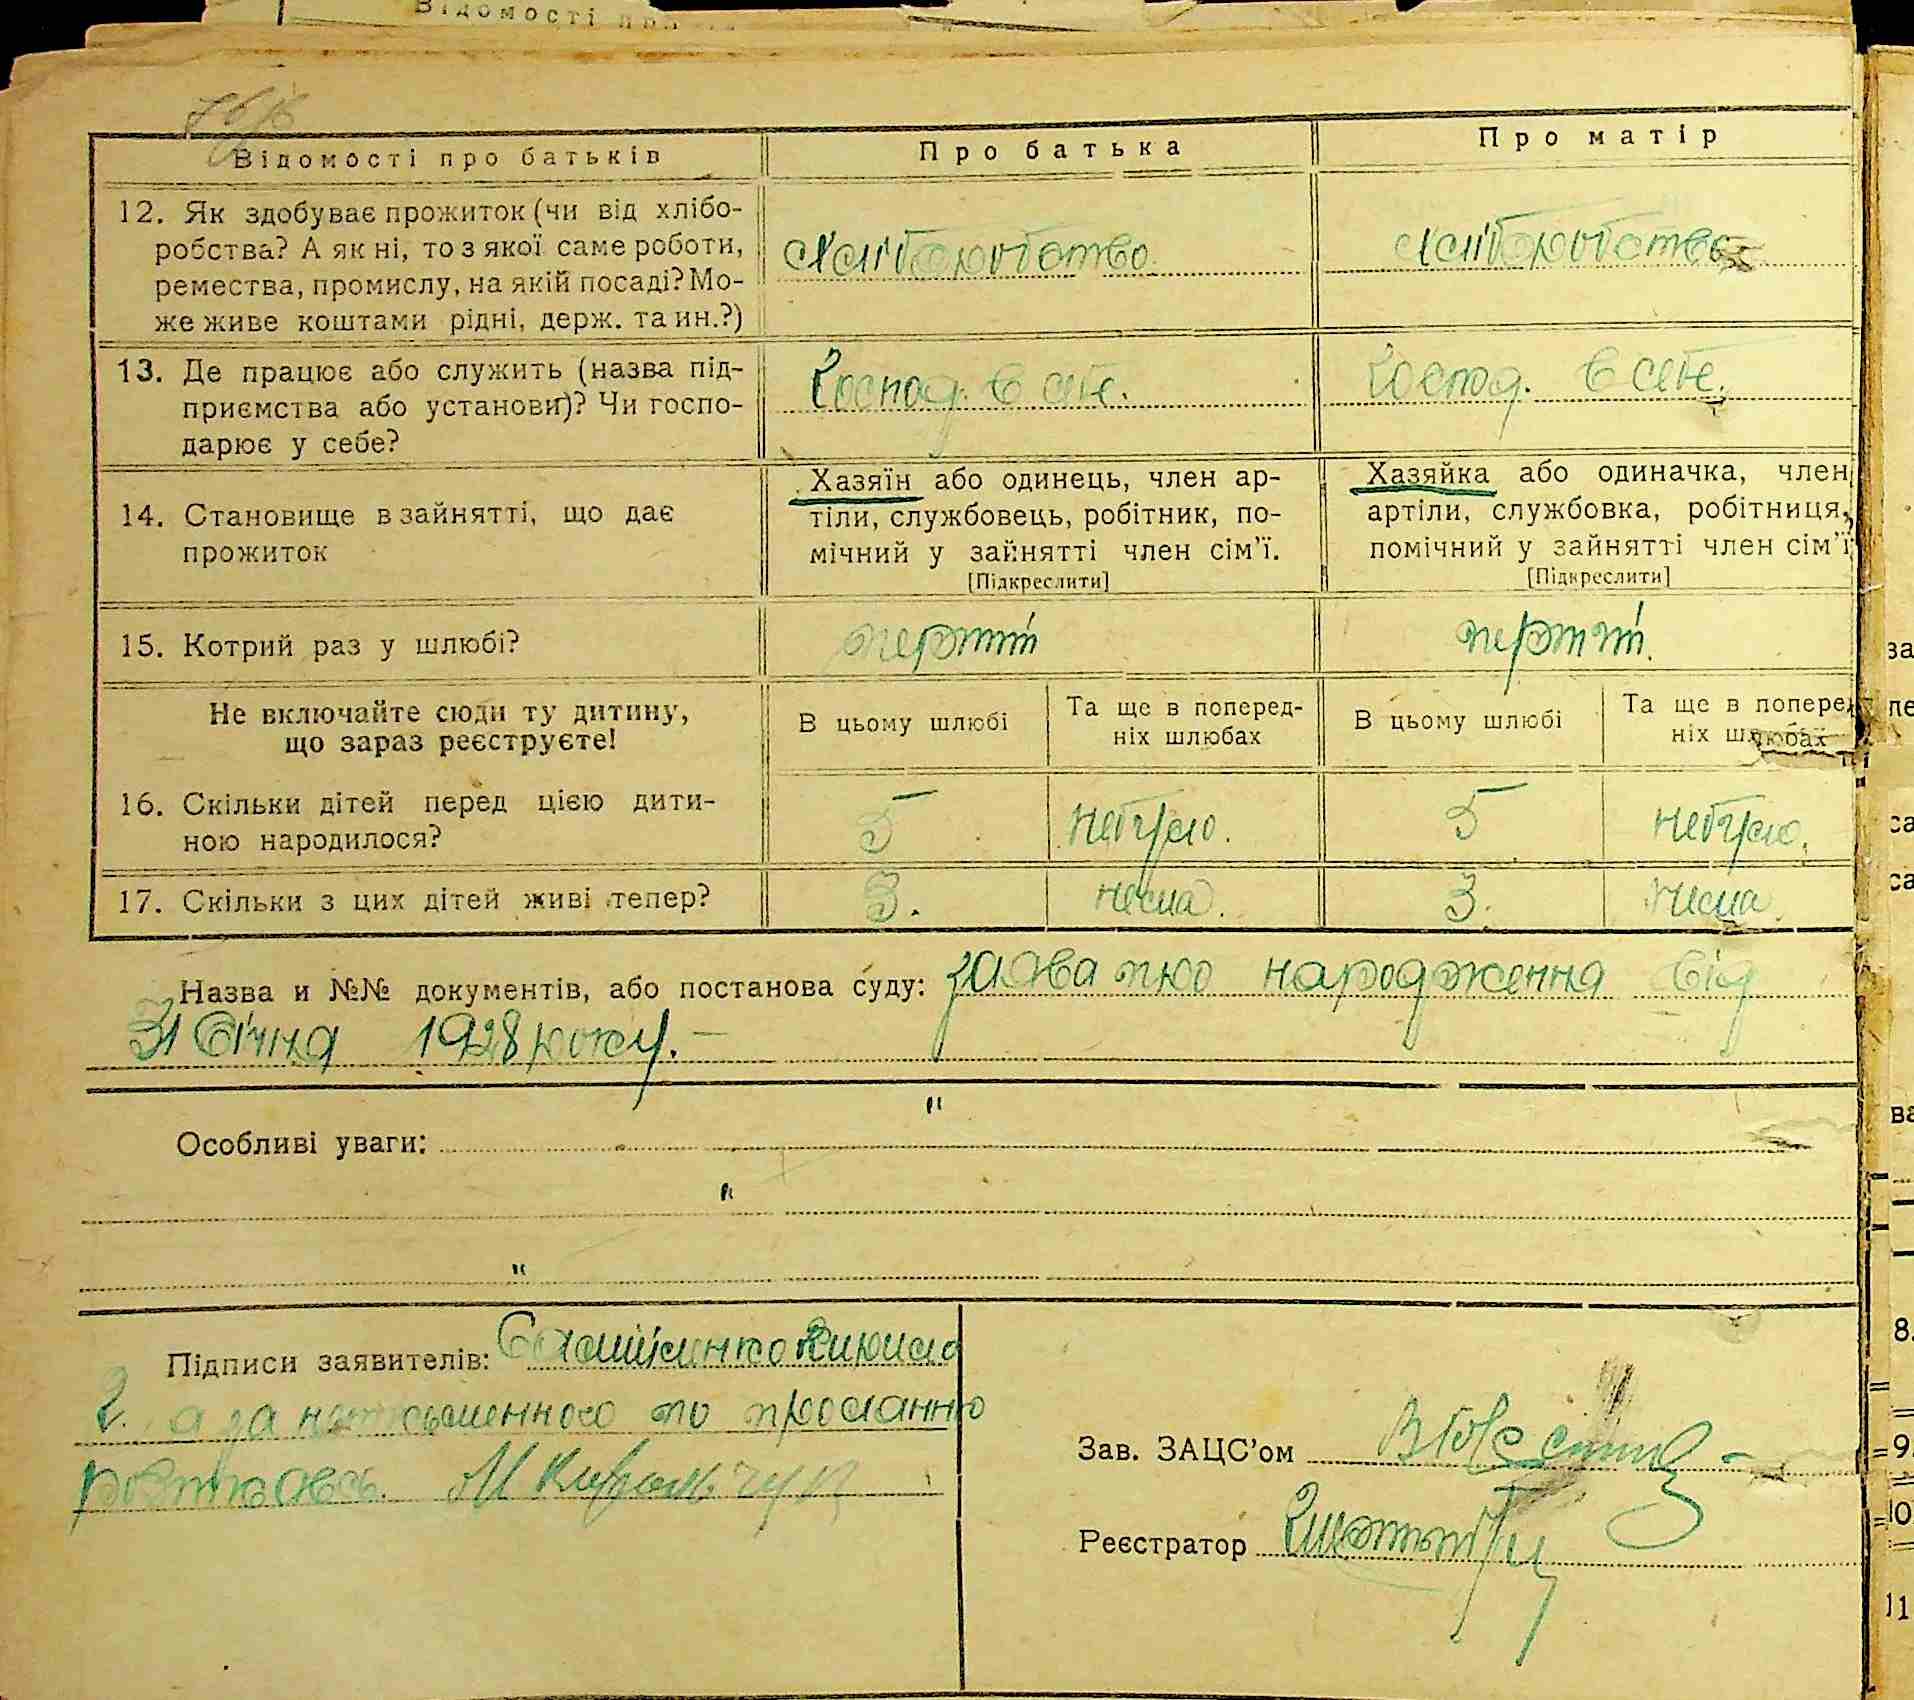 Відомості про
Відомості про батьків
Про батька
Про матір
12. Як здобуває прожиток (чи від хлібо-
робства? А як ні, то з якої саме роботи,
ремества, промислу, на якій посаді? Мо-
же живе коштами рідні, держ. та ин.?)
хліборобство.
хліборобство
13. Де працює або служить (назва під-
приємства або установи)? Чи госпо-
дарює у себе?
Господ. в себе.
Господ. в себе.
14. Становище в зайнятті, що дає
прожиток
Хазяїн або одинець, член ар-
тіли, службовець, робітник, по-
мічний у зайнятті член сім'ї.
[Підкреслити]
Хазяйка або одиначка, член
артіли, службовка, робітниця,
помічний у зайнятті член сім'ї
[Підкреслити]
15. Котрий раз у шлюбі?
перший
перший.
Не включайте сюди ту дитину,
що зараз реєструєте!
В цьому шлюбі
Та ще в поперед-
ніх шлюбах
В цьому шлюбі
Та ще в поперед
ніх шлюбах
16. Скільки дітей перед цією дити-
ною народилося?
5
небуло.
5
небуло.
17. Скільки з цих дітей живі тепер?
3.
нема.
3.
нема.
Назва и №№ документів, або постанова суду: заява про народження від
31 січня 1928 року. –
Особливі уваги: "
"
"
Підписи заявителів: Кирило
2. а за неписьменного по проханню
розписавсь. М
Зав. ЗАЦС'ом
Реєстратор
за
пе
са
са
ва
8.
9
10
11